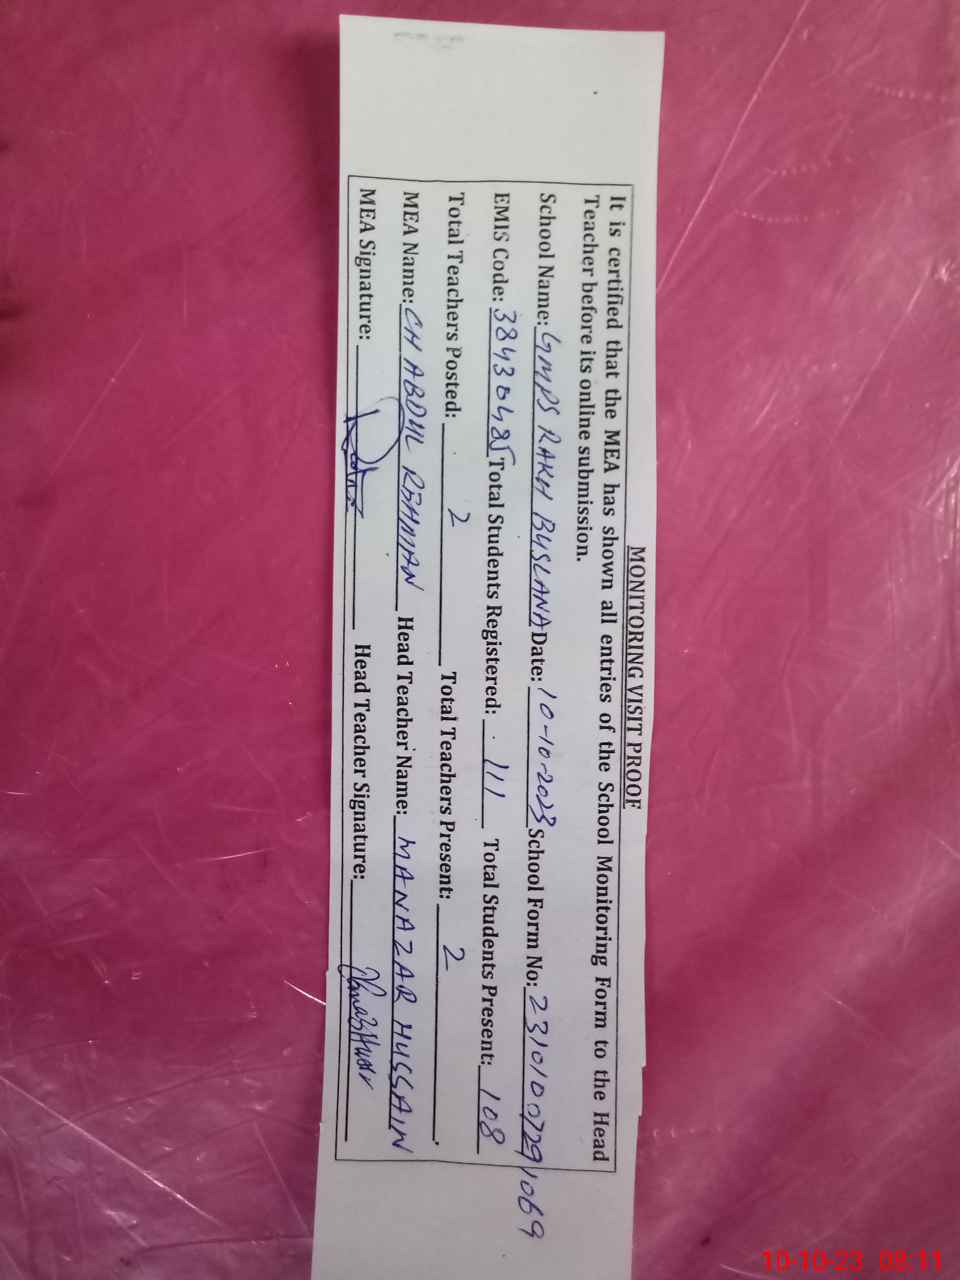 MONITORING VISIT PROOF
It is certified that the MEA has shown all entries of the School Monitoring Form to the Head
Teacher before its online submission.
School Name: GMPS RAKH BUSLANA Date: 10-10-2023 School Form No: 23101007291069
EMIS Code: 38430485 Total Students Registered: 111 Total Students Present: 108
Total Teachers Posted: 2 Total Teachers Present: 2
MEA Name: CH ABDUL REHMAN Head Teacher Name: MANAZAR HUSSAIN
MEA Signature: Head Teacher Signature:
10-10-23 08:11